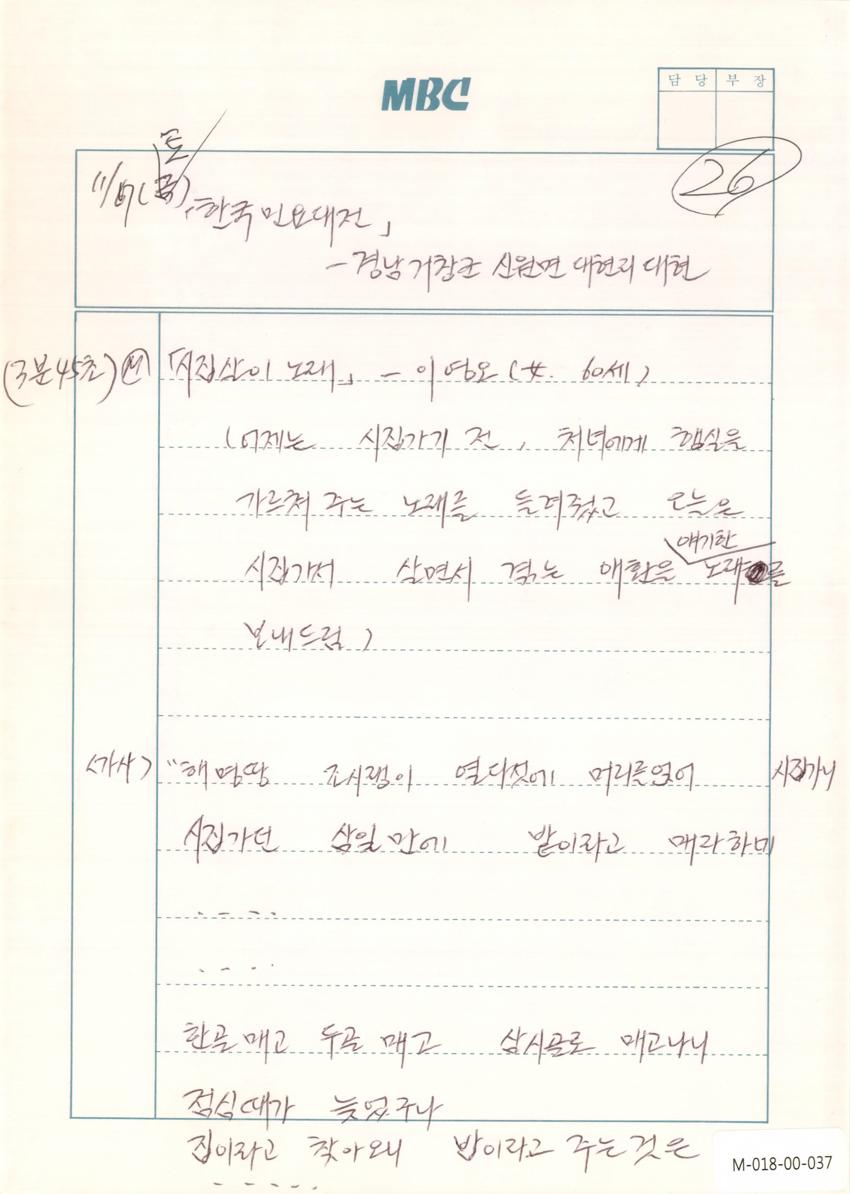 MBC
담 당 부 장
토
11/17(금)
26
「한국 민요대전」
- 경남 거창군 신원면 대현리 대현
(3분45초) M 「시집살이 노래」 - 이영오 (女. 60세)
(어제는 시집가기 전, 처녀에게 행실을
가르쳐 주는 노래를 들려줬고 오늘은
얘기한
시집가서 살면서 겪는 애환을 노래를
보내드림)
<가사> "해명땅 조시랭이 열다섯에 머리를얹어 시집가니
시집가던 삼일만에 밭이라고 매라하네
.....
.....
한골매고 두골 매고 삼시골로 매고나니
점심때가 늦었구나
집이라고 찾아오니 밥이라고 주는것은
.....
M-018-00-037